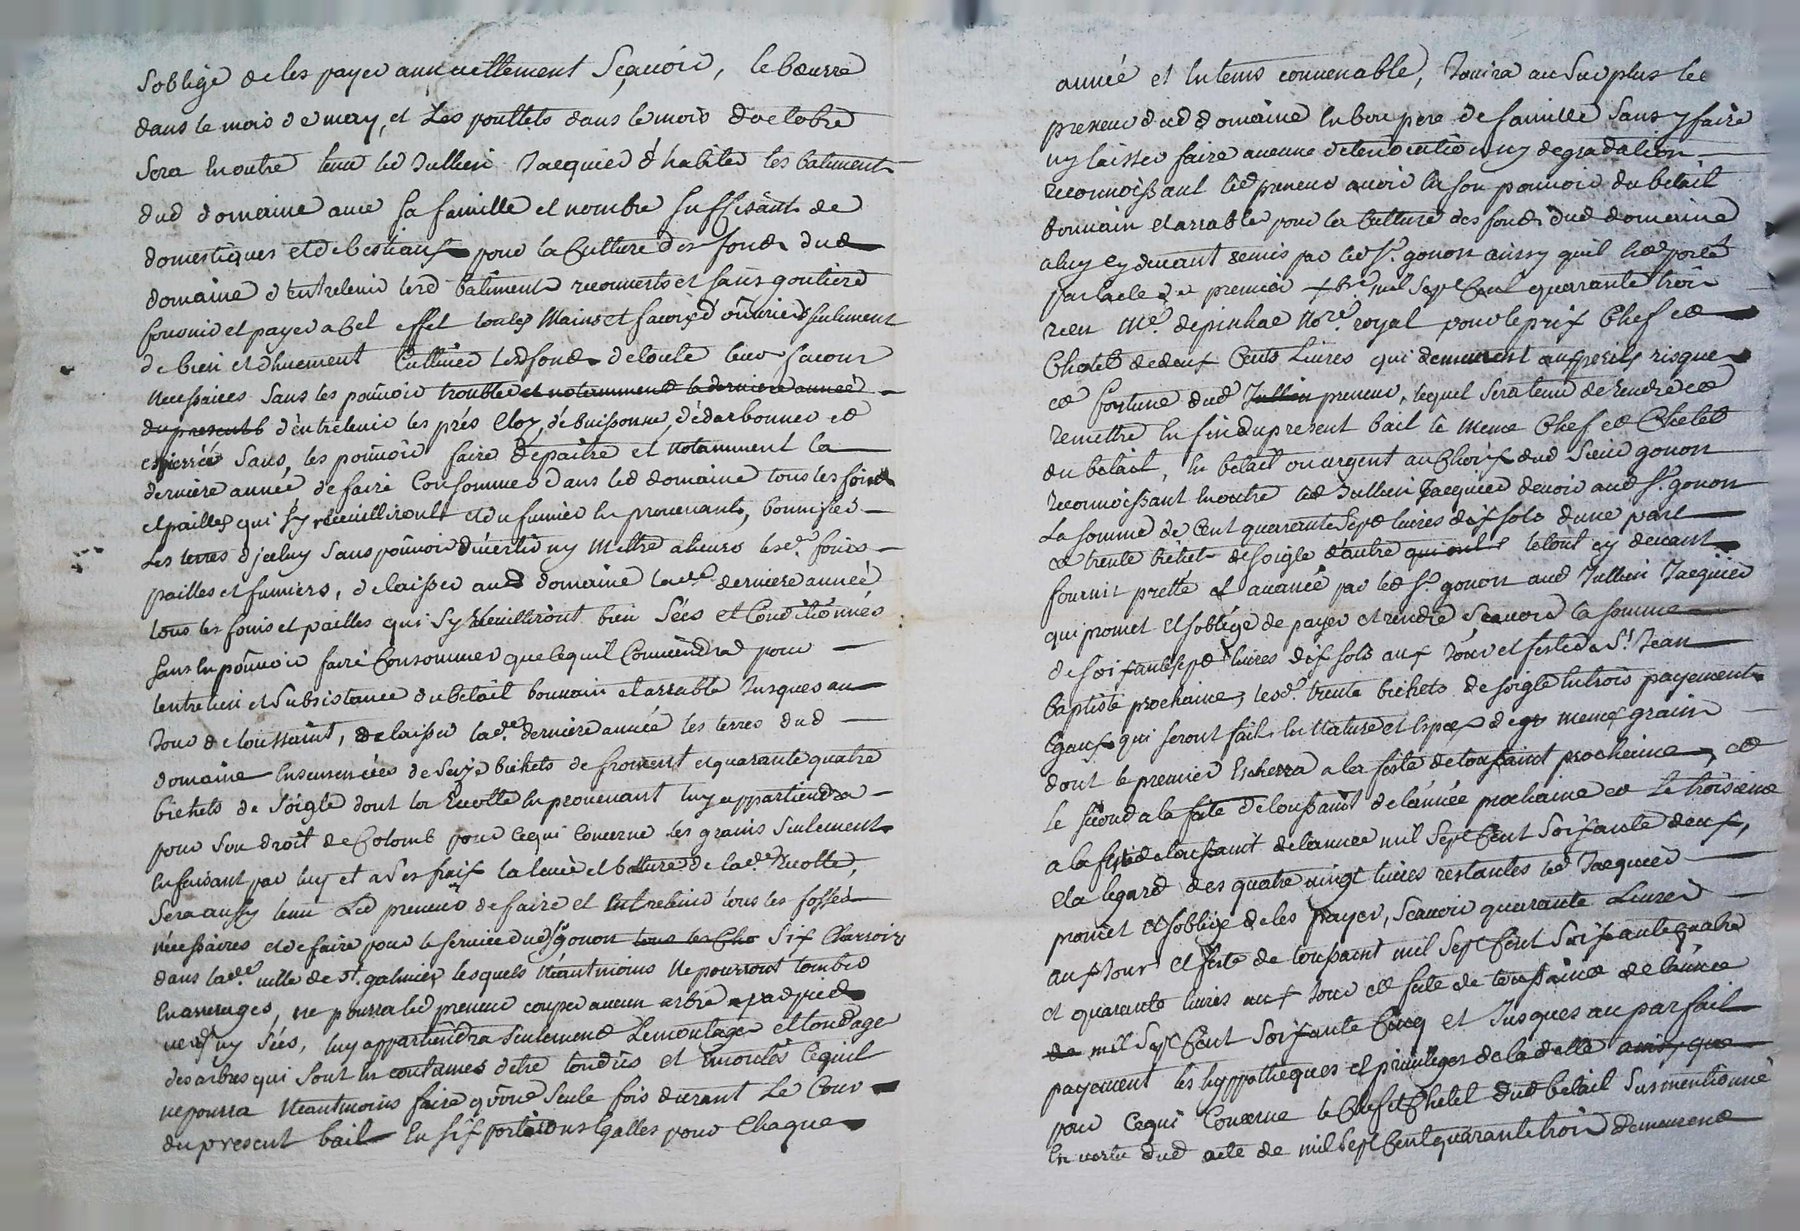 s'oblige de les payer annuellement Sçauoir, le beurre
dans le mois de may, et Les poullets dans le mois doctobre
Sera En outre tenu led Jullien Jacquier d'habiter les batiments
dud domaine auec sa famille et nombre suffisant de
domestiques et de bestiaux pour la Culture des fonds dud
domaine d'Entretenir lesd batiments recouverts et sans goutiere
fournir et payer a Cet effet toutes Mains et facons d'ouuriers seulement
de bien et duement Cultiuer lesd fonds de toute leur facons
Necessaires Sans les pouuoir troubler et notamment la derniere année
du present b d'entretenir les prés Clos, débuissonner, dédarbonner et
epierrée Sans, les pouuoir faire depaitre et notamment la
derniere année de faire Consommer dans led domaine tous les foins
et pailles qui s'y receuilliront et du fumier En prouenant, bonnifier
Les terres d'jceluy sans pouuoir diuertir ny Mettre ahuors lesd foins
pailles et fumiers, de laisser aud domaine lade derniere année
tous les foins et pailles qui s'y Reuilliront bien Secs et Conditionnés
sans En pouuoir faire Consommer que ce quil Conuiendra pour
lentretien et Subsistance du betail bouuain et arrable Jusques au
Jour de toussaint, de laisser lade derniere année les terres dud
domaine Ensemencées de Seize bichets de froment et quarante quatre
bichets de Soigle dont la Recolte En prouenant luy appartiendra
pour Son droit de Colomb pour Cequi Concerne les grains Seulement
En faisant par luy et a Ses fraix la leuée et batture de lade Recolte,
Sera aussy tenu Led preneur de faire et Entretenir tous les fossés
nécessaires et de faire pour le seruice dud Sr gonon tous les Cha Six Charrois
dans lade uille de St. galmier lesquels Néantmoins Ne pourront tomber
En arrerages, ne pourra led preneur couper aucun arbre par pied
uerd ny Sécs, luy appartiendra seulement Lemontage et tondage
des arbres qui Sont En coutumes d'etre tondües et Emontés Cequil
ne pourra Neantmoins faire qu'une Seule fois durant Le Cour
du present bail En six portions Egalles pour Chaque
année et En tems conuenable, Jouira au Surplus led
preneur dud domaine En bon pere de famille Sans y faire
ny laisser faire aucune deterioration ny degradation
reconnoissant led preneur auoir En son pouuoir du betail
bouuain et arrable pour la Culture des fonds dud domaine
a luy cy deuant remis par led Sr. gonon ainsy quil Est porté
par lacte du premier xbre mil Sept Cent quarante trois
receu Me. depinhac Nore. royal pour le prix Chef et
Chetel de deux Cents Liures qui demeurent aux perils risques
et fortune dud Jullien preneur, lequel Sera tenu de Rendre et
remettre En fin du present bail le meme Chef et Chetel
du betail, En betail ou argent au Choix dud Sieur gonon
reconnoissant En outre led Jullien Jacquier deuoir aud Sr. gonon
La somme de Cent quarante Sept liures dix sols d'une part
et trente bichets de soigle d'autre qui ont letout cy deuant
fournit prette et auancé par led Sr. gonon aud Jullien Jacquier
qui promet et s'oblige de payer et rendre Sçauoir la somme
de soixante sept liures dix sols aux Jour et feste de St. Jean
Baptiste prochaine, lesd. trente bichets de soigle En trois payements
Egaux qui seront fait En Nature et Espece de gr memes grains
dont le premier Escherra a la feste de toussaint prochaine, et
le second a la fete de toussaint de lannée prochaine et Le troisieme
a la feste de toussaint de lannée mil Sept Cent Soixante deux,
et a legard des quatre uingt liures restantes led Jacquier
promet et s'oblige de les payer, Scauoir quarante Liures
aux Jour et feste de toussaint mil Sept Cent Soixante quatre
et quarante liures aux Jour et fete de toussaint de lannée
de mil Sept Cent Soixante Cinq et Jusques au parfait
payement les hyppotheques et priuileges de la dette ainsy que
pour Cequi Concerne le Chef et Chetel dud betail Susmentionné
En vertu dud acte de mil Sept Cent quarante trois demeurent